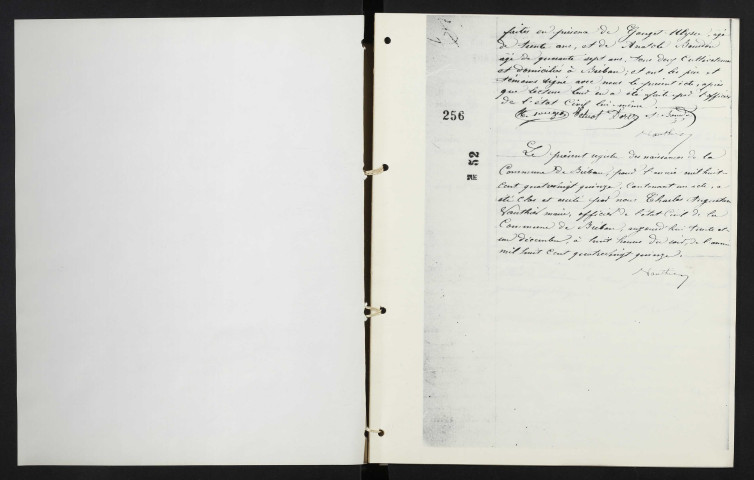 faites en présence de Songet Ulysse, agé
de trente ans, et de Anatole
agé de quarante sept ans, tous deux Cultivateurs
et domiciliés à Bréban; et ont les père et
témoins signé avec nous le présent acte, après
que lecture leur en a été faite par l'officier
de l'état Civil lui-même.
256
Le présent registre des naissances de la
Commune de Bréban, pour l'année mil huit-
cent quatrevingt quinze, contenant un acte, a
été clos et arrêté par nous Charles Augustin
Gauthier maire, officier de l'état Civil de la
Commune de Bréban, aujourd'hui trente et-
un décembre, à huit heures du soir, de l'année
mil huit cent quatrevingt quinze.
Gauthier